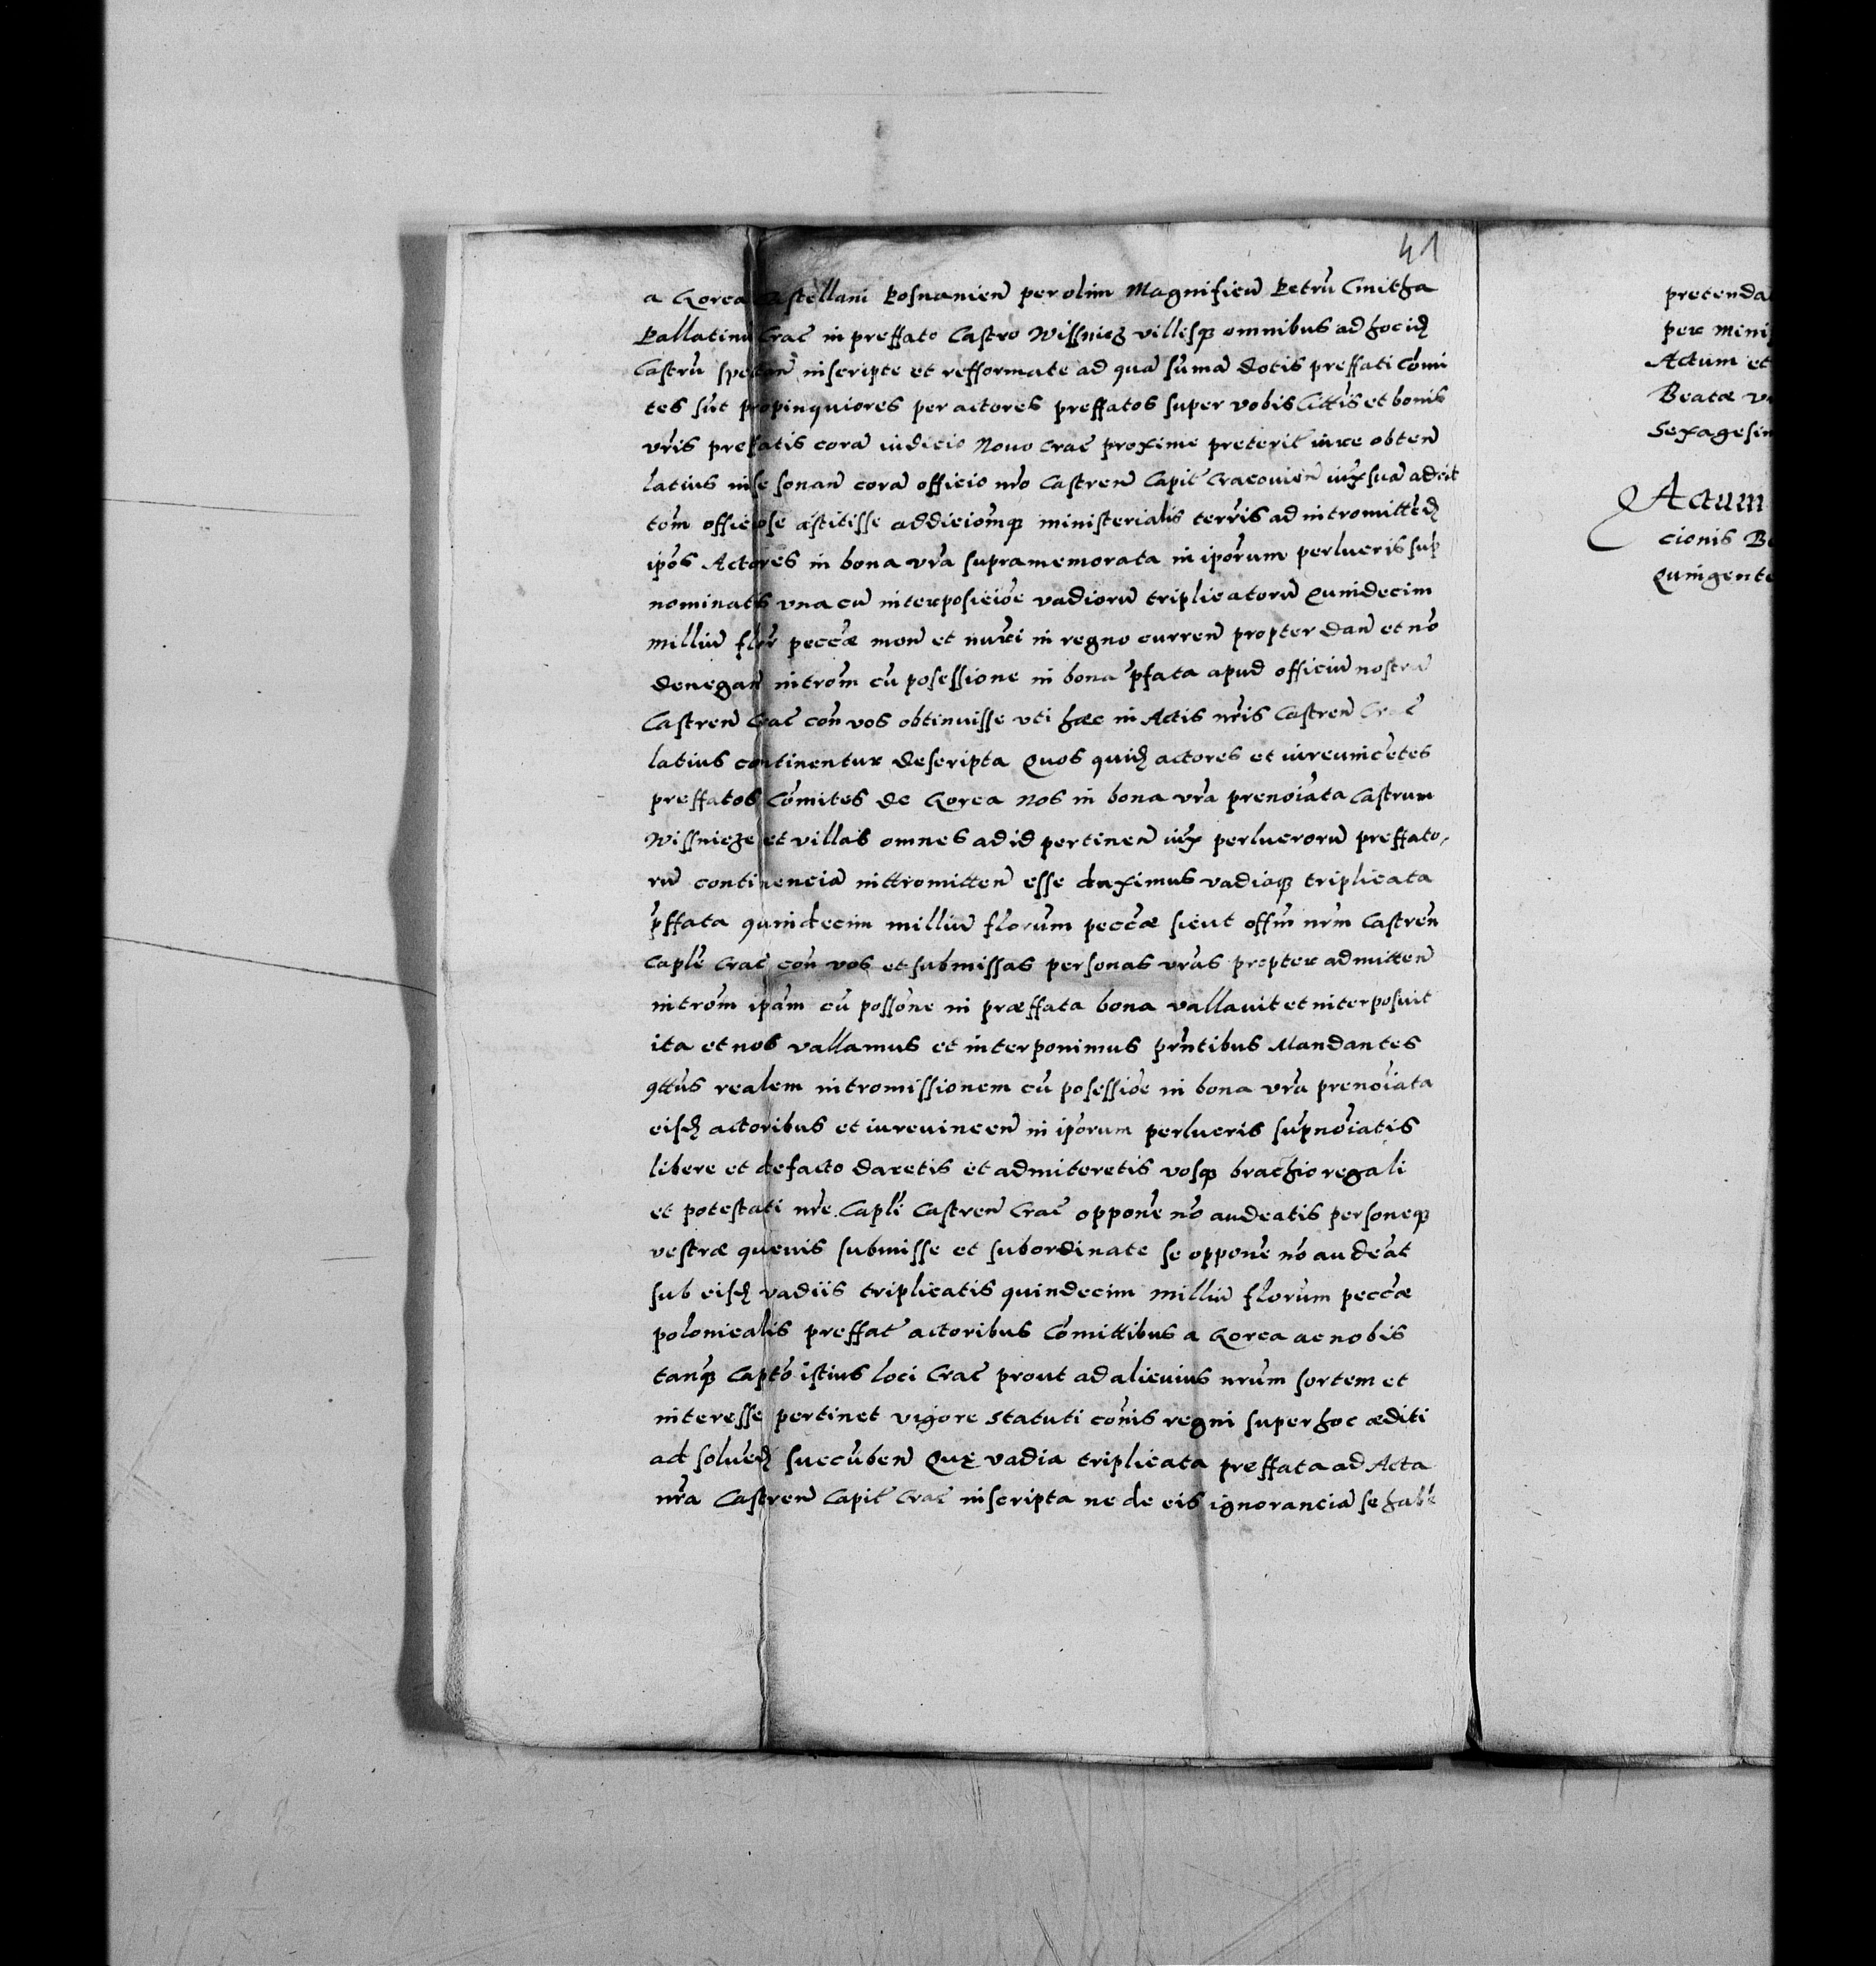 41
a Gorca Castellani Posnanien̄ per olim Magnificū Petrū Cmitha
Pallatinū Crac̄ in preffato Castro Wissnicz villisqꝫ omnibus ad hoc id
Castrū spectan̄ inscripte et refformate ad quā sūmā dotis preffati Cōmi
tes sūt propinquiores per actores preffatos super vobis Cittis et bonis
vr̄is prefatis corā iudicio Novo Crac̄ proxime preterit̄ iure obten̄
latius in se sonan̄ corā officio nr̄o Castren̄ Capit̄ Cracovien̄ iux̄ suā adcit
tom̄ officiose astitisse addiciom̄qꝫ ministerialis terr̄is ad intromitted
ipōs Actores in bona vr̄a supramemorata in ipōrum perlucris sup
nominatis vna cū interposiciōe vadiorū triplicatorū Quindecim
milliū flor̄ pecc̄æ mon̄ et nūri in regno curren̄ propter dan̄ et nō
denegan̄ introm̄ cū posessione in bona p̄fata apud officiū nostrū
Castren̄ Crac̄ con̄ vos obtinuisse vti hæc in Actis nr̄is Castren̄ Crac̄
latius continentur descripta Quos quid actores et iureuincētes
preffatos Cōmites de Gorca nos in bona vr̄a prenoīata Castrum
Wissnicze et villas omnes ad id pertinen̄ iux̄ perlucrorū preffato,
rū continenciā inttromitten̄ esse duximus vadiaqꝫ triplicata
p̄ffata quindecim milliū florum̄ pecc̄æ sicut offm̄ nrm̄ Castren̄
Caplē Crac̄ con̄ vos et submissas personas vrās propter admitten̄
introm̄ ipām cū possōne in præffata bona vallauit et interposuit
ita et nos vallamus et interponimus prn̄tibus Mandantes
qttūs realem intromissionem cū posessiōe in bona vr̄a prenoīata
eisd actoribus et iureuincen̄ in ipōrum perlucris supnoīatis
libere et de facto daretis et admiteretis vosqꝫ brachio regali
et potestati nr̄e Caplī Castren̄ Crac̄ opponē nō audeatis personeqꝫ
vestræ quevis submisse et subordinate se opponē nō audeāt
sub eisd vadiis triplicatis quindecim milliū florum̄ pecc̄æ
polonicalis preffat̄ actoribus Cōmittibus a Gorca ac nobis
tanqꝫ Captō istius loci Crac̄ prout ad alicuius nrum̄ sortem et
interesse pertinet vigore statuti cōnis regni super hoc æditi
ad solued succūben̄ Quę vadia triplicata preffata ad Acta
nr̄a Castren̄ Capit̄ Crac̄ inscripta ne de eis ignoranciā se habē
Actum et
Beatæ
Actum
cionis